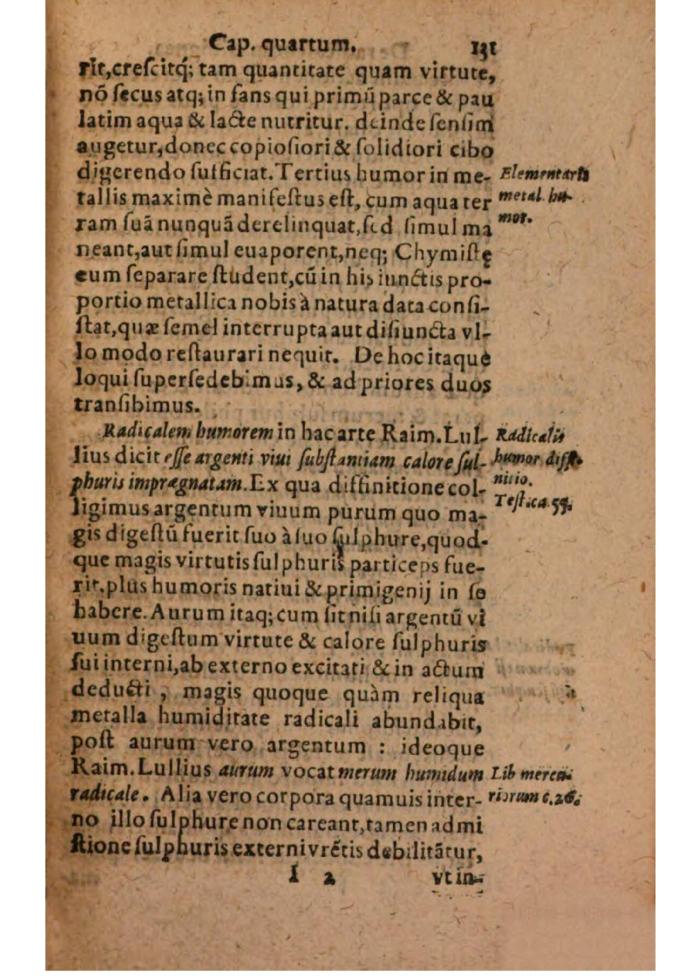 Cap. quartum. 131
rit,creſcitq́; tam quantitate quam virtute,
nō ſecus atq; in fans qui primū parce & pau
latim aqua & lacte nutritur. deinde ſenſim
augetur,donec copioſiori & ſolidiori cibo
digerendo ſufficiat. Tertius humor in me-
tallis maximè manifeſtus eſt, cum aqua ter
ram ſuā nunquā derelinquat,ſed ſimul ma
neant,aut ſimul euaporent,neq; Chymiſtę
eum ſeparare ſtudent,cū in his iunctis pro-
portio metallica nobis à natura data conſi-
ſtat,quæ ſemel interrupta aut diſiuncta vl-
lo modo reſtaurari nequit. De hoc itaque
loqui ſuperſedebimus, & ad priores duos
tranſibimus.
Elementaris
metal. hu-
mor.
Radicalem humorem in hac arte Raim. Lul-
lius dicit eſſe argenti viui ſubſtantiam calore ſul-
phuris imprægnatam. Ex qua diffinitione col-
ligimus argentum viuum purum quo ma-
gis digeſtū fuerit ſuo à ſuo ſulphure,quod-
que magis virtutis ſulphuris particeps fue-
rit,plus humoris natiui & primigenij in ſe
habere. Aurum itaq; cum ſit niſi argentū vi
uum digeſtum virtute & calore ſulphuris
ſui interni,ab externo excitati & in actum
deducti , magis quoque quàm reliqua
metalla humiditate radicali abundabit,
poſt aurum vero argentum : ideoque
Raim. Lullius aurum vocat merum humidum
radicale. Alia vero corpora quamuis inter-
no illo ſulphure non careant,tamen admi
ſtione ſulphuris externi vrētis debilitātur,
Radicalis
humor diffi-
nitio.
Teſt. ca. 59.
Lib mercu
riorum c.26.
I 2 vt in-